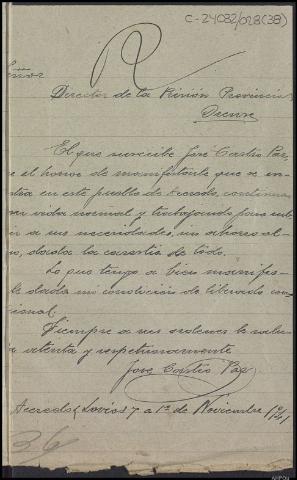 C-24082/028(38)
R
eñor
Director de la Prision Provincial
Orense
El que suscribe José Castro Paz,
e el honor de manifestarle que se en
tra en este pueblo de Acevedo, continua
su vida normal y trabajando para aten
ir a sus necesidades, sin ahorro al
o, dada la carestia de todo.
Lo que tengo a bien manifes
le dada mi condicion de liberado con
cional.
Siempre a sus ordenes le salu
atenta y respetuosamente
José Castro Paz
Acevedo (Lovios) a 1º de Noviembre 1941
36
AHPOu